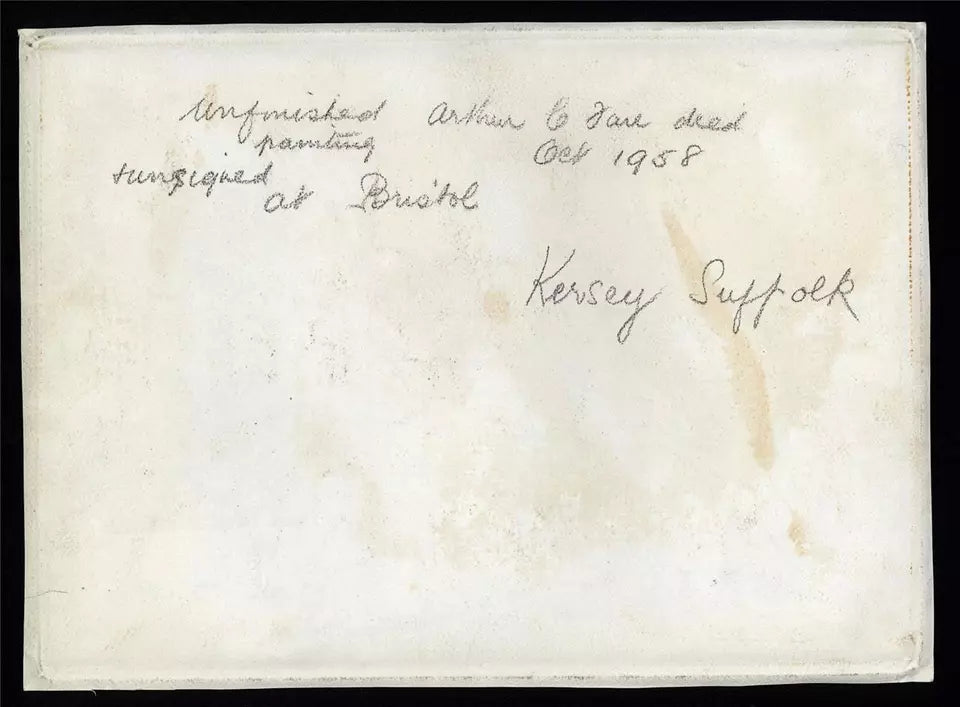 Unfinished Arthur C Fare died
painting Oct 1958
+unsigned
at Bristol
Kersey Suffolk